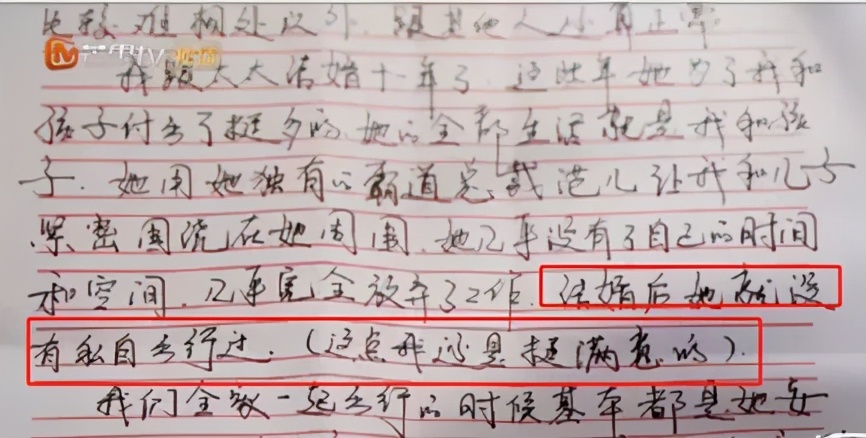 比较难相处以外，跟其他人还算正常
芒果TV 视频
我跟太太结婚十年了，这些年她为了我和
孩子付出了挺多的，她的全部生活就是我和孩
子，她用她独有的霸道总裁范儿让我和儿子
紧密围绕在她周围，她几乎没有了自己的时间
和空间，几乎完全放弃了工作，结婚后她就没
有私自出行过，（这点我还是挺满意的）．
我们全家一起出行的时候基本都是她安